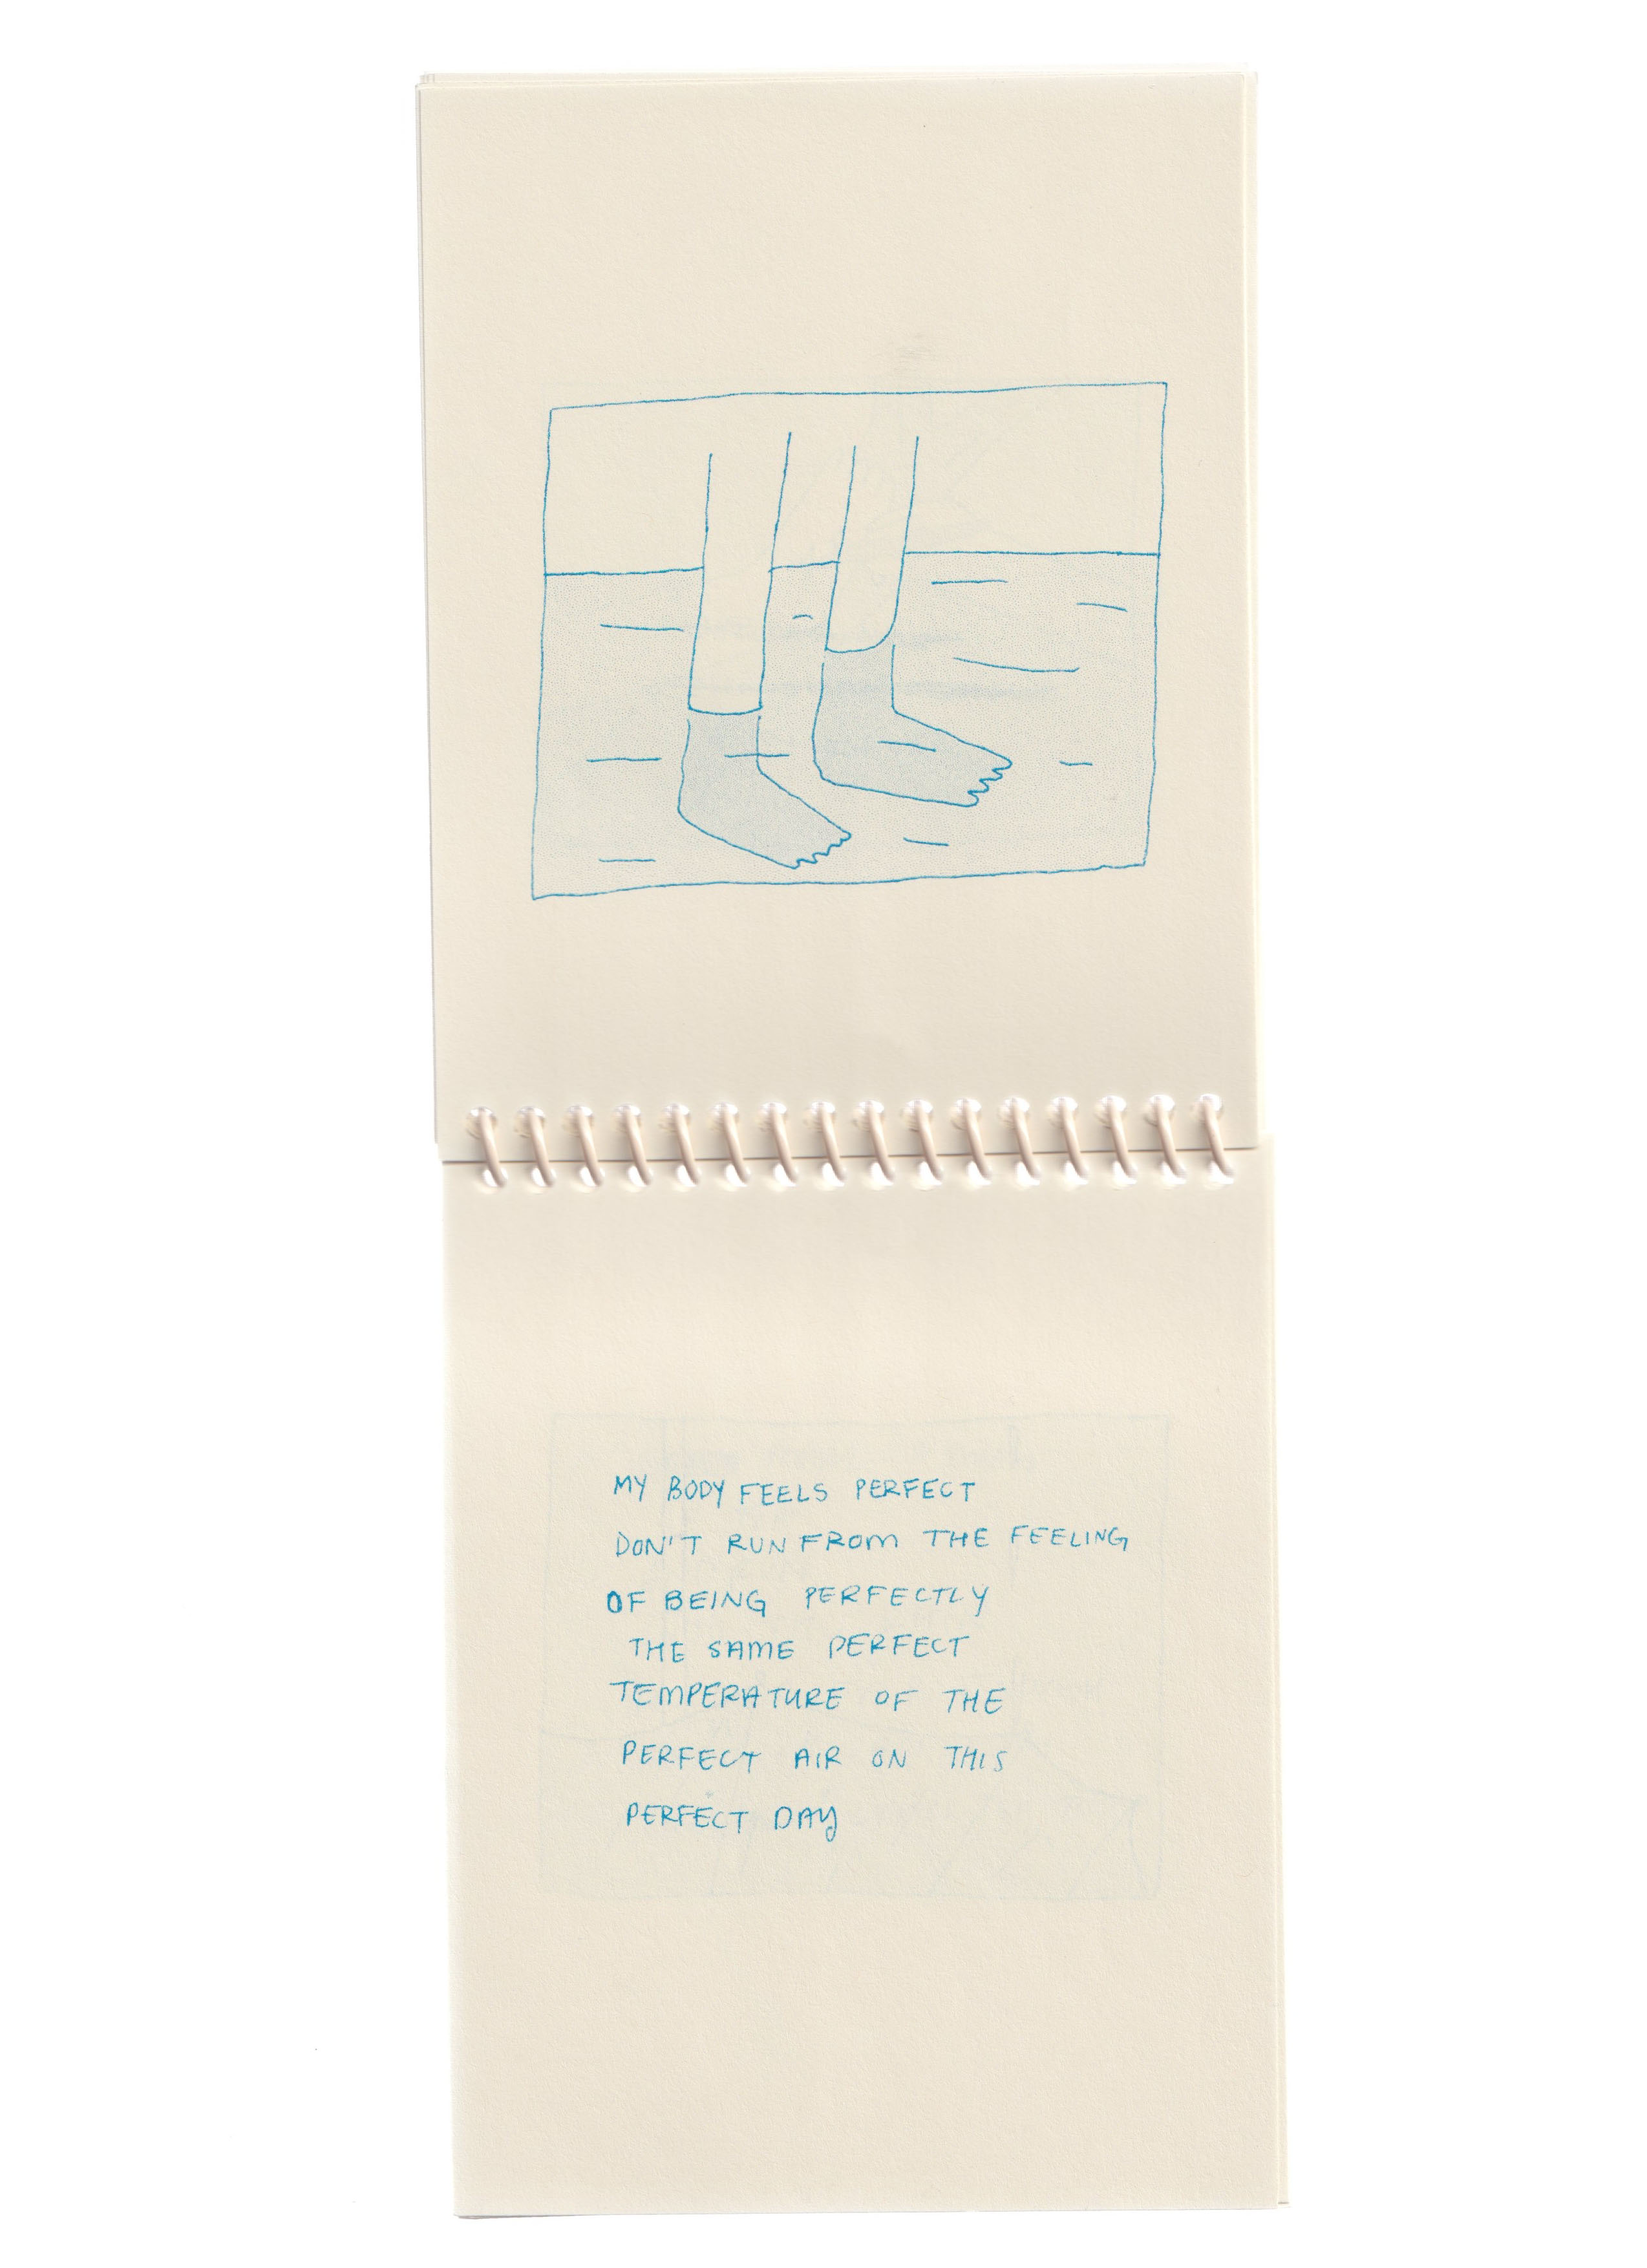 MY BODY FEELS PERFECT
DON'T RUN FROM THE FEELING
OF BEING PERFECTLY
THE SAME PERFECT
TEMPERATURE OF THE
PERFECT AIR ON THIS
PERFECT DAY